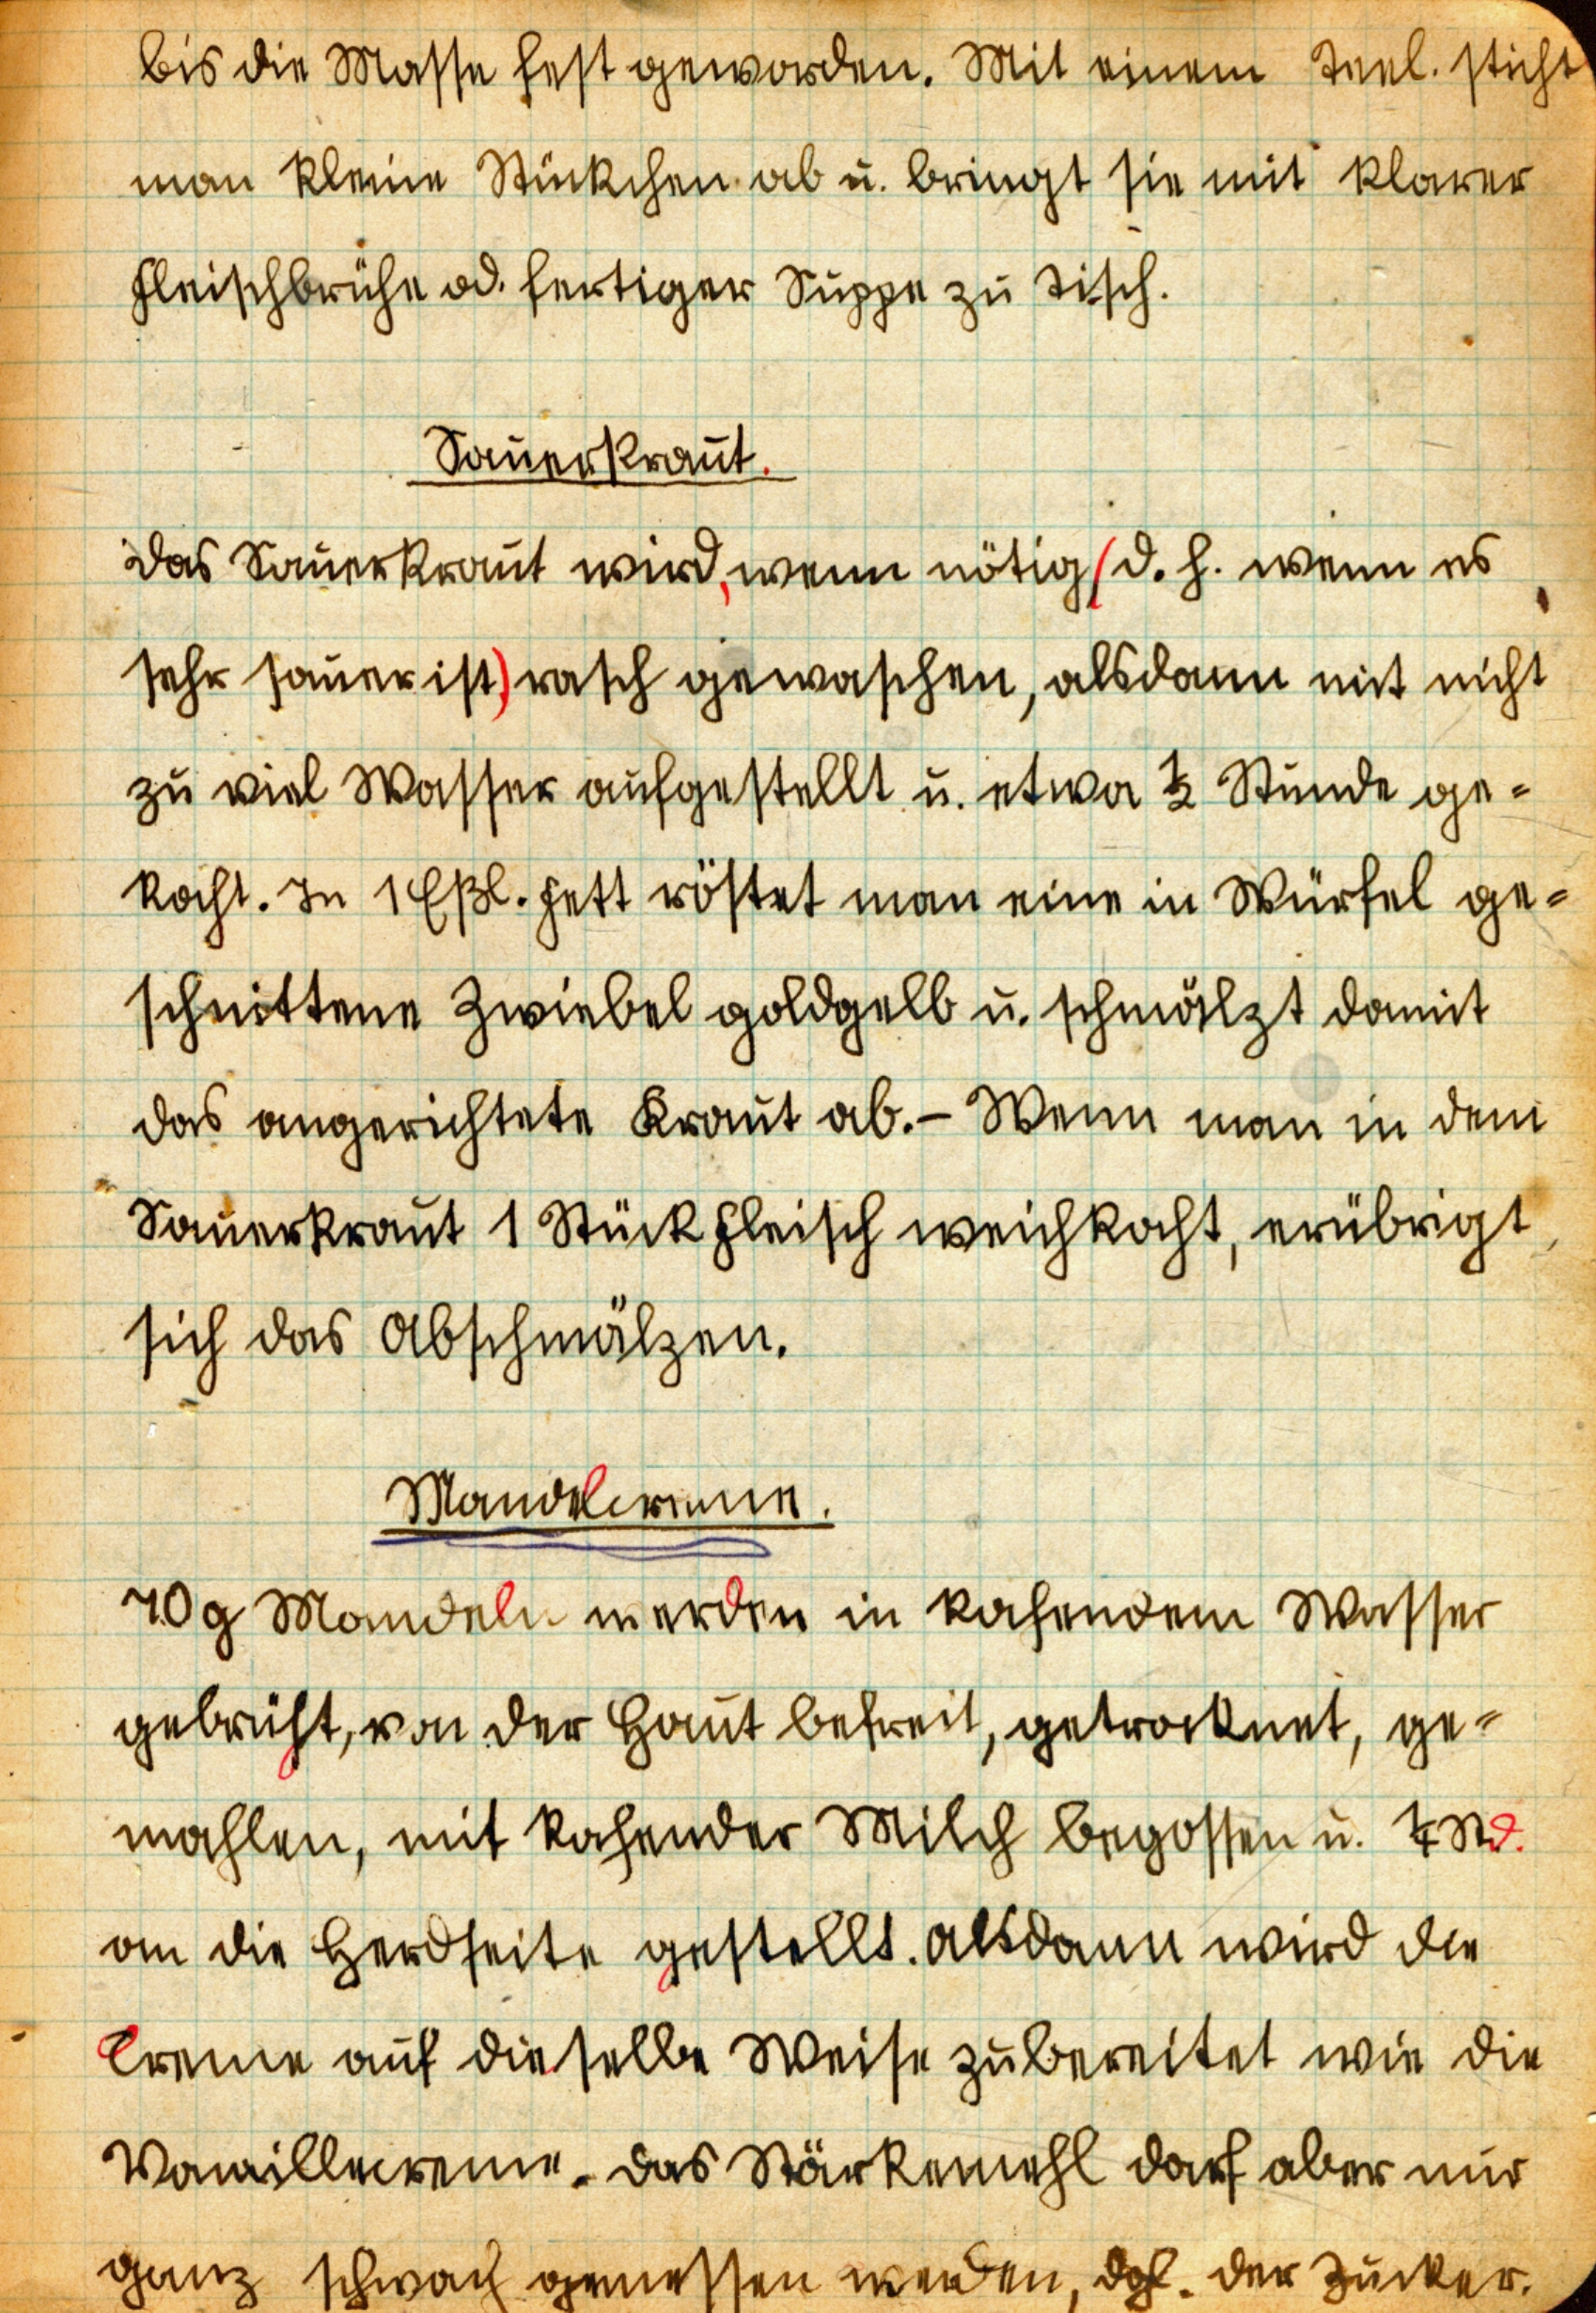 bis die Masse fest geworden. Mit einem Teel. sticht
man kleine Stückchen ab u. bringt sie mit klarer
Fleischbrühe od. fertiger Suppe zu Tisch.
Sauerkraut.
Das Sauerkraut wird, wenn nötig (d. h. wenn es
sehr sauer ist) rasch gewaschen, alsdann mit nicht
zu viel Wasser aufgestellt u. etwa ½ Stunde ge-
kocht. In 1 Eßl. Fett röstet man eine in Würfel ge-
schnittene Zwiebel goldgelb u. schmälzt damit
das angerichtete Kraut ab. – Wenn man in dem
Sauerkraut 1 Stück Fleisch weichkocht, erübrigt
sich das Abschmälzen.
Mandelcreme.
70 g Mandeln werden in kochendem Wasser
gebrüht, von der Haut befreit, getrocknet, ge-
mahlen, mit kochender Milch begossen u. ¼ Std.
an die Herdseite gestellt. Alsdann wird die
Creme auf dieselbe Weise zubereitet wie die
Vanillecreme. Das Stärkemehl darf aber nur
ganz schwach gemessen werden, dgl. der Zucker.